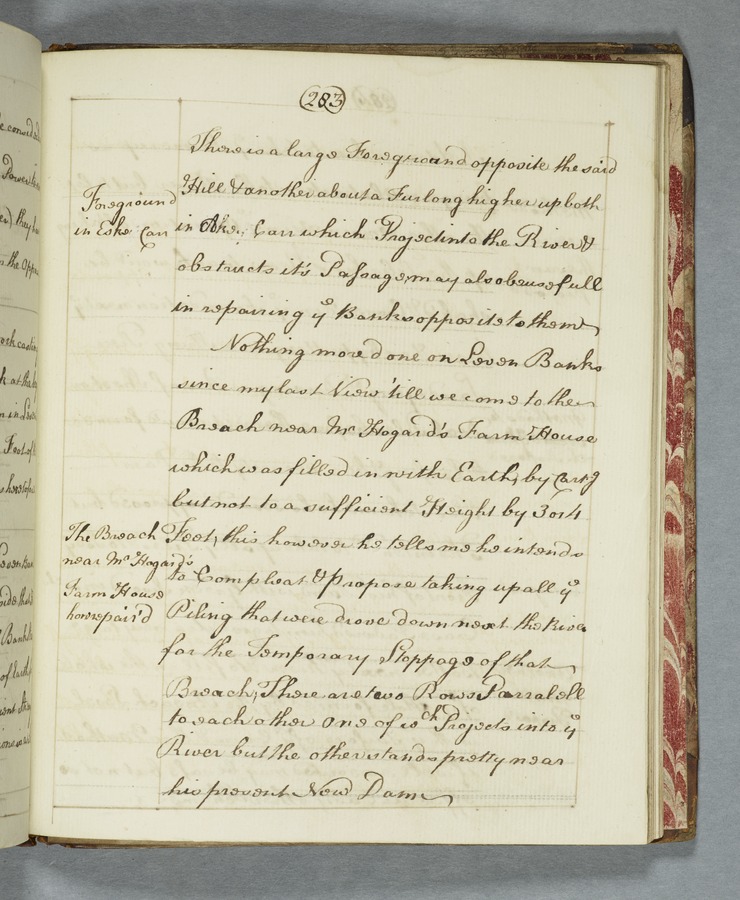 283
There is a large Foreground opposite the said
Hill & another about a Furlong higher up both
Foreground
in Eske Carr
in Eske Carr which Project into the River &
obstructs it's Passage, may also be usefull
in repairing ye Banks opposite to them
Nothing more done on Leven Banks
since my last View 'till we come to the
Breach near Mr Hogard's Farm House
which was filled in with Earth, by
but not to a sufficient Height by 3 or 4
The Breach
near Mr Hogard's
Farm House
how repair'd
Feet, this however he tells me he intends
to Compleat & Propose taking up all ye
Piling that were drove down next the River
for the Temporary Stoppage of that
Breach, There are two Rows Parralell
to each other one of wch Projects into ye
River but the other stands pretty near
his present New Dam